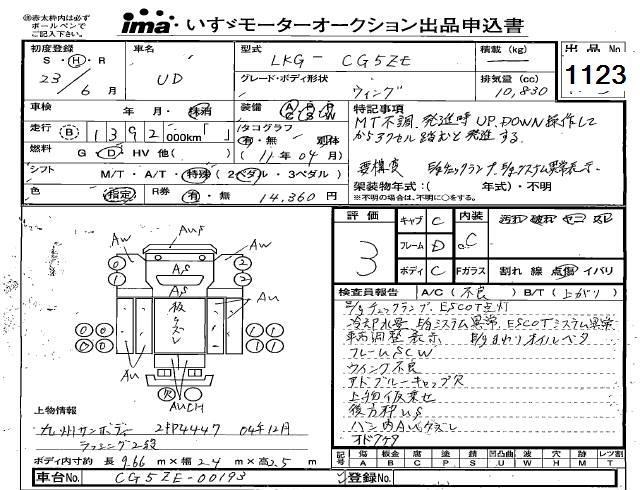 ㊟赤太枠内は必ず
ボールペンで
ご記入下さい。
ima・いすゞモーターオークション出品申込書
初度登録 車名 型式 積載(kg) 出品No
S・H・R LKG- CG5ZE
23/6月 UD グレード・ボディ形状 排気量(cc) 1123
ウィング 10,830
車検 年 月・抹消 装備 特記事項
MT不調.発進時UP.DOWN操作して
走行 B 1392 000km「 」 タコグラフ
からアクセル踏むと発進する.
有・無 別体
燃料 G・D・HV 他( ) (11年04月)
シフト M/T・A/T・特殊(2ペダル・3ペダル) 架装物年式:( 年式)・不明
※不明の場合は、不明に○をする。
色 指定 R券 有・無 14,360円
評価 キャブ C 内装 汚れ 破れ
3 フレーム D C
ボディ C Fガラス 割れ 線 点傷 イバリ
検査員報告 A/C(不良) B/T(上がり)
E/gチェックランプ.ESCOT点灯
冷却水要 E/gシステム異常.ESCOTシステム異常
車両調整 表示 E/gまわりオイルベタ
フレームSCW
ウィング不良
アドブルーキャップ欠
上物仮乗せ
後方枠US
バン内AUケズレ
AW AUF AW
0 2
1 2
AS
AS
板
ケズレ
AU AU
0 0 0 1
0 0 1 1
AU AU
欠 AUCH
上物情報
九州サンボデー 2FP4447 04年12月
ラッシング2段
ボディ内寸約 長 9.66m×幅2.4m×高2.5m
記号 傷 板金 腐 塗 錆 凹凸曲 波 穴 跡 欠 レツ割
A B C P S U W H M X T
車台No CG5ZE-00193 登録No